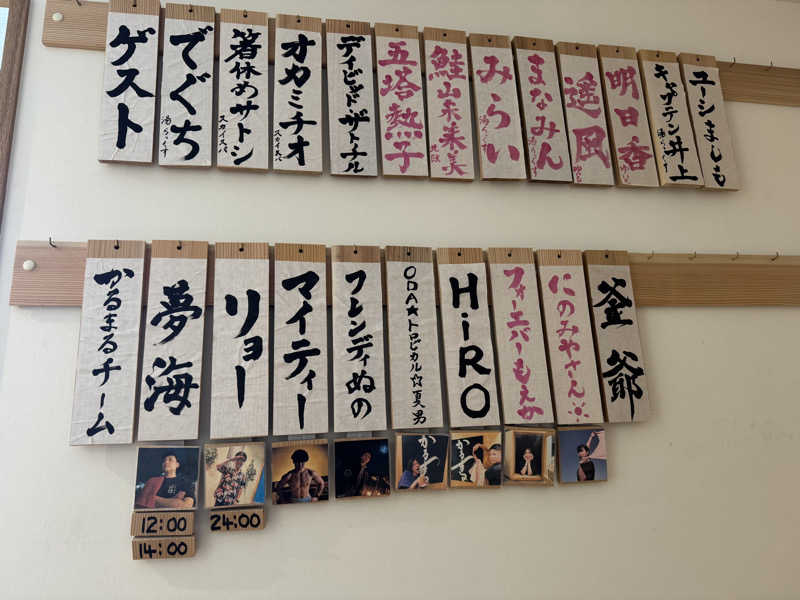 ゲスト
でぐち
湯らっくす
箸休めサトシ
スカイスパ
オカミチオ
スカイスパ
デイビッド・ザ・トーナル
五塔熱子
鮭山未来美
みらい
湯らっくす
まなみん
湯らっくす
遥凪
明日香
キャサテン井上
湯らっくす
ユーシャましも
かるまるチーム
夢海
リョー
マイティー
フレンディぬの
ODA★トロピカル☆夏男
HiRO
フォーエバーもえか
にのみやさん
釜爺
かるまる
かるまる
12:00
24:00
14:00